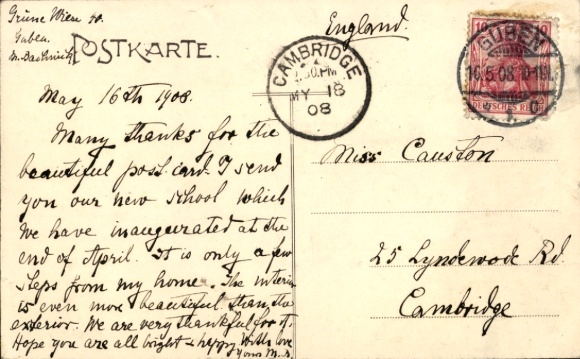 Grüne Wiese
Guben.
England.
POSTKARTE.
10 10
DEUTSCHES REICH
GUBEN
16.5.08
CAMBRIDGE
.30 PM
MY 18
08
May 16th 1908.
Many thanks for the
beautiful post card. I send
you our new school which
We have inaugurated at the
end of April. It is only a few
steps from my home. The interior
is even more beautiful than the
exterior. We are very thankful for it.
Hope you are all bright & happy. With love
Yours M. D.
Miss Causton
25 Lyndewode Rd.
Cambridge